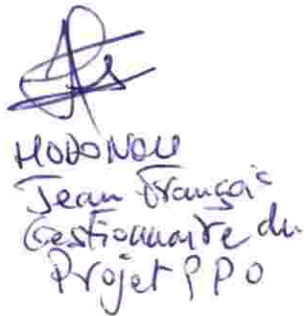 HODONOU
Jean François
Gestionnaire du
Projet PPO